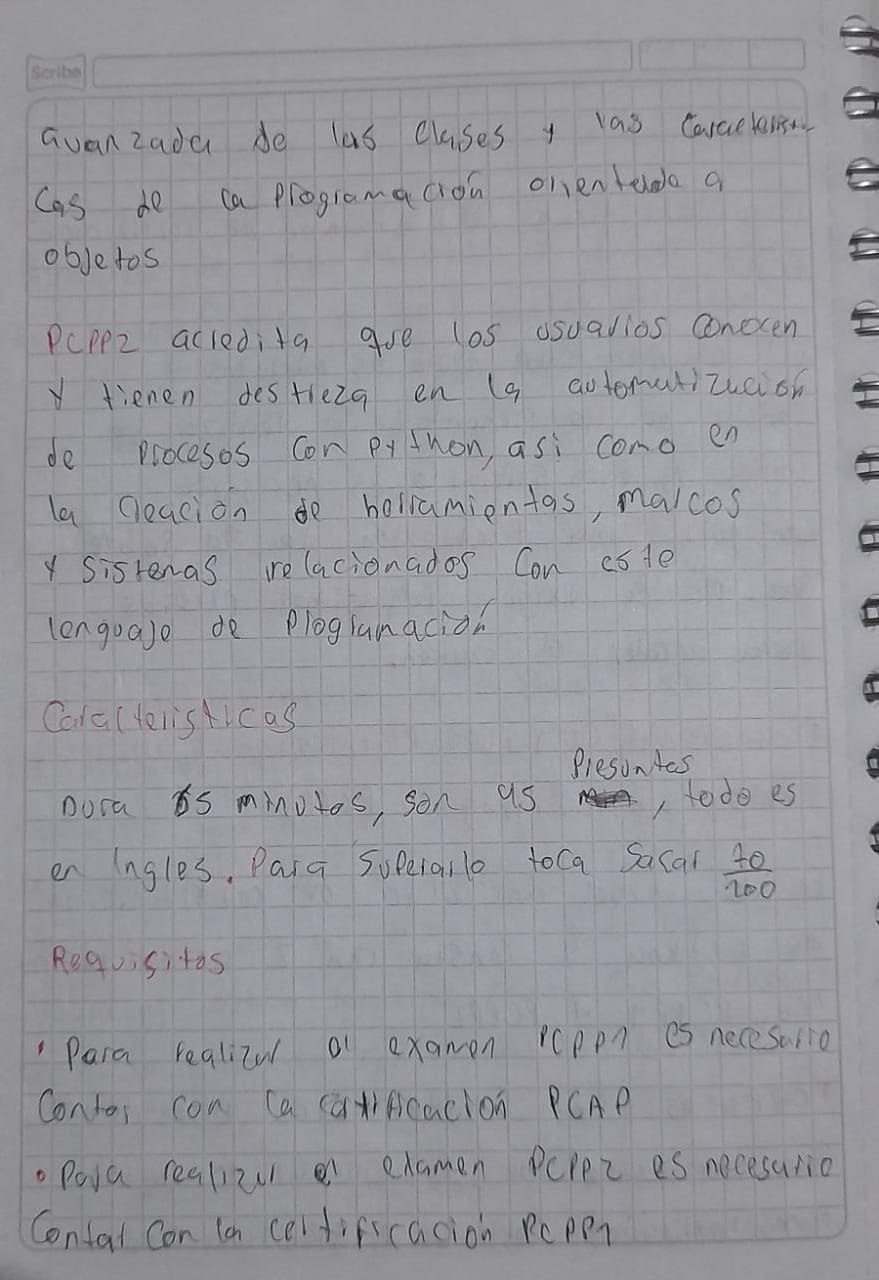 Scribe
avanzada de las clases y las Caracteristi-
cas de la Programación orientada a
objetos
PCPP2 acredita que los usuarios conocen
y tienen destreza en la automatización
de procesos con python, asi como en
la creación de herramientas, marcos
y sistemas relacionados con este
lenguaje de programación
Caracteristicas
Preguntas
Dura 65 minutos, son 45 , todo es
en ingles. Para superarlo toca sacar 70
100
Requisitos
• Para realizar el examen PCPP1 es necesario
Contar con la certificación PCAP
• Para realizar el examen PCPP2 es necesario
Contar con la certificación PCPP1